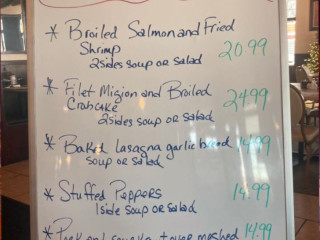 * Broiled Salmon and Fried
Shrimp 20.99
2 sides soup or salad
* Filet Mignon and Broiled
Crabcake 24.99
2 sides soup or salad
* Baked lasagna garlic bread 14.99
soup or salad
* Stuffed Peppers 14.99
1 side soup or salad
* Pork and 14.99